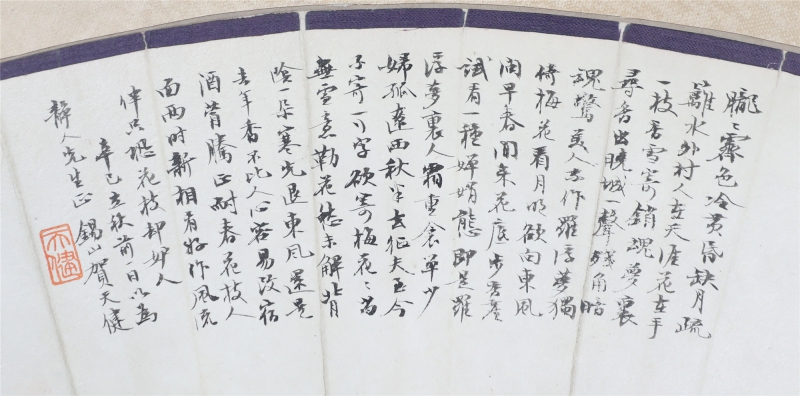 朧々霽色冷黄昏缺月疏
籬水外村人在天涯花在手
一枝香雪寄銷魂夢裏
尋香出曉城一聲殘角暗
魂驚美人去作羅浮夢獨
倚梅花看月明欲向東風
問早春閒来花底步香塵
試看一種嬋娟態即是羅
浮夢裏人霜重衾單少
婦孤遼西秋早去征夫至今
不寄一行字欲寄梅花々為
無雪意勒花愁未解背
陰一朵寒先退東風還是
去年香不比人心容易改宿
酒瞢騰正耐春花枝人
面兩時新相看好作風流
伴只恐花枝却妒人
辛巳立秋前一日以為
靜人先生正 錫山賀天健
天健